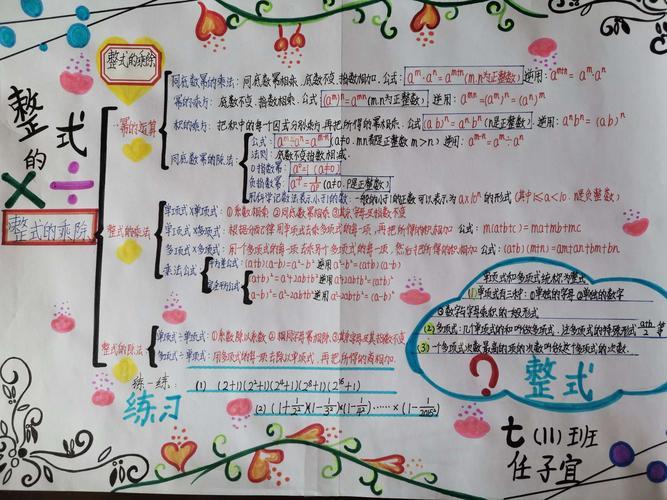 整式的×÷
整式的乘除
整式的乘除
幂的运算
同底数幂的乘法：同底数幂相乘，底数不变，指数相加。公式：aᵐ·aⁿ=aᵐ⁺ⁿ(m.n为正整数) 逆用：aᵐ⁺ⁿ=aᵐ·aⁿ
幂的乘方：底数不变，指数相乘，公式：(aᵐ)ⁿ=aᵐⁿ(m.n为正整数) 逆用：aᵐⁿ=(aᵐ)ⁿ=(aⁿ)ᵐ
积的乘方：把积中的每个因式分别乘方，再把所得的幂相乘，公式(ab)ⁿ=aⁿbⁿ(n是正整数) 逆用：aⁿbⁿ=(ab)ⁿ
同底数幂的除法：
公式：aᵐ÷aⁿ=aᵐ⁻ⁿ(a≠0，mn都是正整数 m>n) 逆用：aᵐ⁻ⁿ=aᵐ÷aⁿ
法则：底数不变指数相减.
0指数幂：a⁰=1 (a≠0)
负指数幂：(a≠0.P是正整数)
用科学记数法表示小于1的数：一般的小于1的正数可以表示为a×10ⁿ的形式(其中1≤a<10，n是负整数)
整式的乘法
单项式×单项式：①系数相乘 ②同底数幂相乘 ③其余字母及指数不变
单项式×多项式：根据分配律用单项式去乘多项式的每一项，再把所得的积相加 公式：m(a+b+c)=ma+mb+mc
多项式×多项式：用一个多项式的每一项去乘另一个多项式的每一项，然后把所得的积相加 公式：(a+b)(m+n)=am+an+bm+bn
乘法公式
平方差公式：(a+b)(a-b)=a²-b² 逆用a²-b²=(a+b)(a-b)
完全平方公式
(a+b)²=a²+2ab+b² 逆用a²+2ab+b²=(a+b)²
(a-b)²=a²-2ab+b² 逆用a²-2ab+b²=(a-b)²
整式的除法
单项式÷单项式：①系数除以系数 ②相同字母幂相除，③其余字母及其指数不变
多项式÷单项式：用多项式的每一项去除以单项式，再把所得的商相加.
练一练：(1) (2+1)(2²+1)(2⁴+1)(2⁸+1)(2¹⁶+1)
练习
(2)
单项式和多项式统称为整式
(1)单项式有三种：①单独的字母 ②单独的数字
③数字与字母乘积的一般形式
(2)多项式：几个单项式的和叫做多项式，
(3)一个多项式次数最高的项的次数叫做这个多项式的次数.
?
整式
七(11)班
任子宜